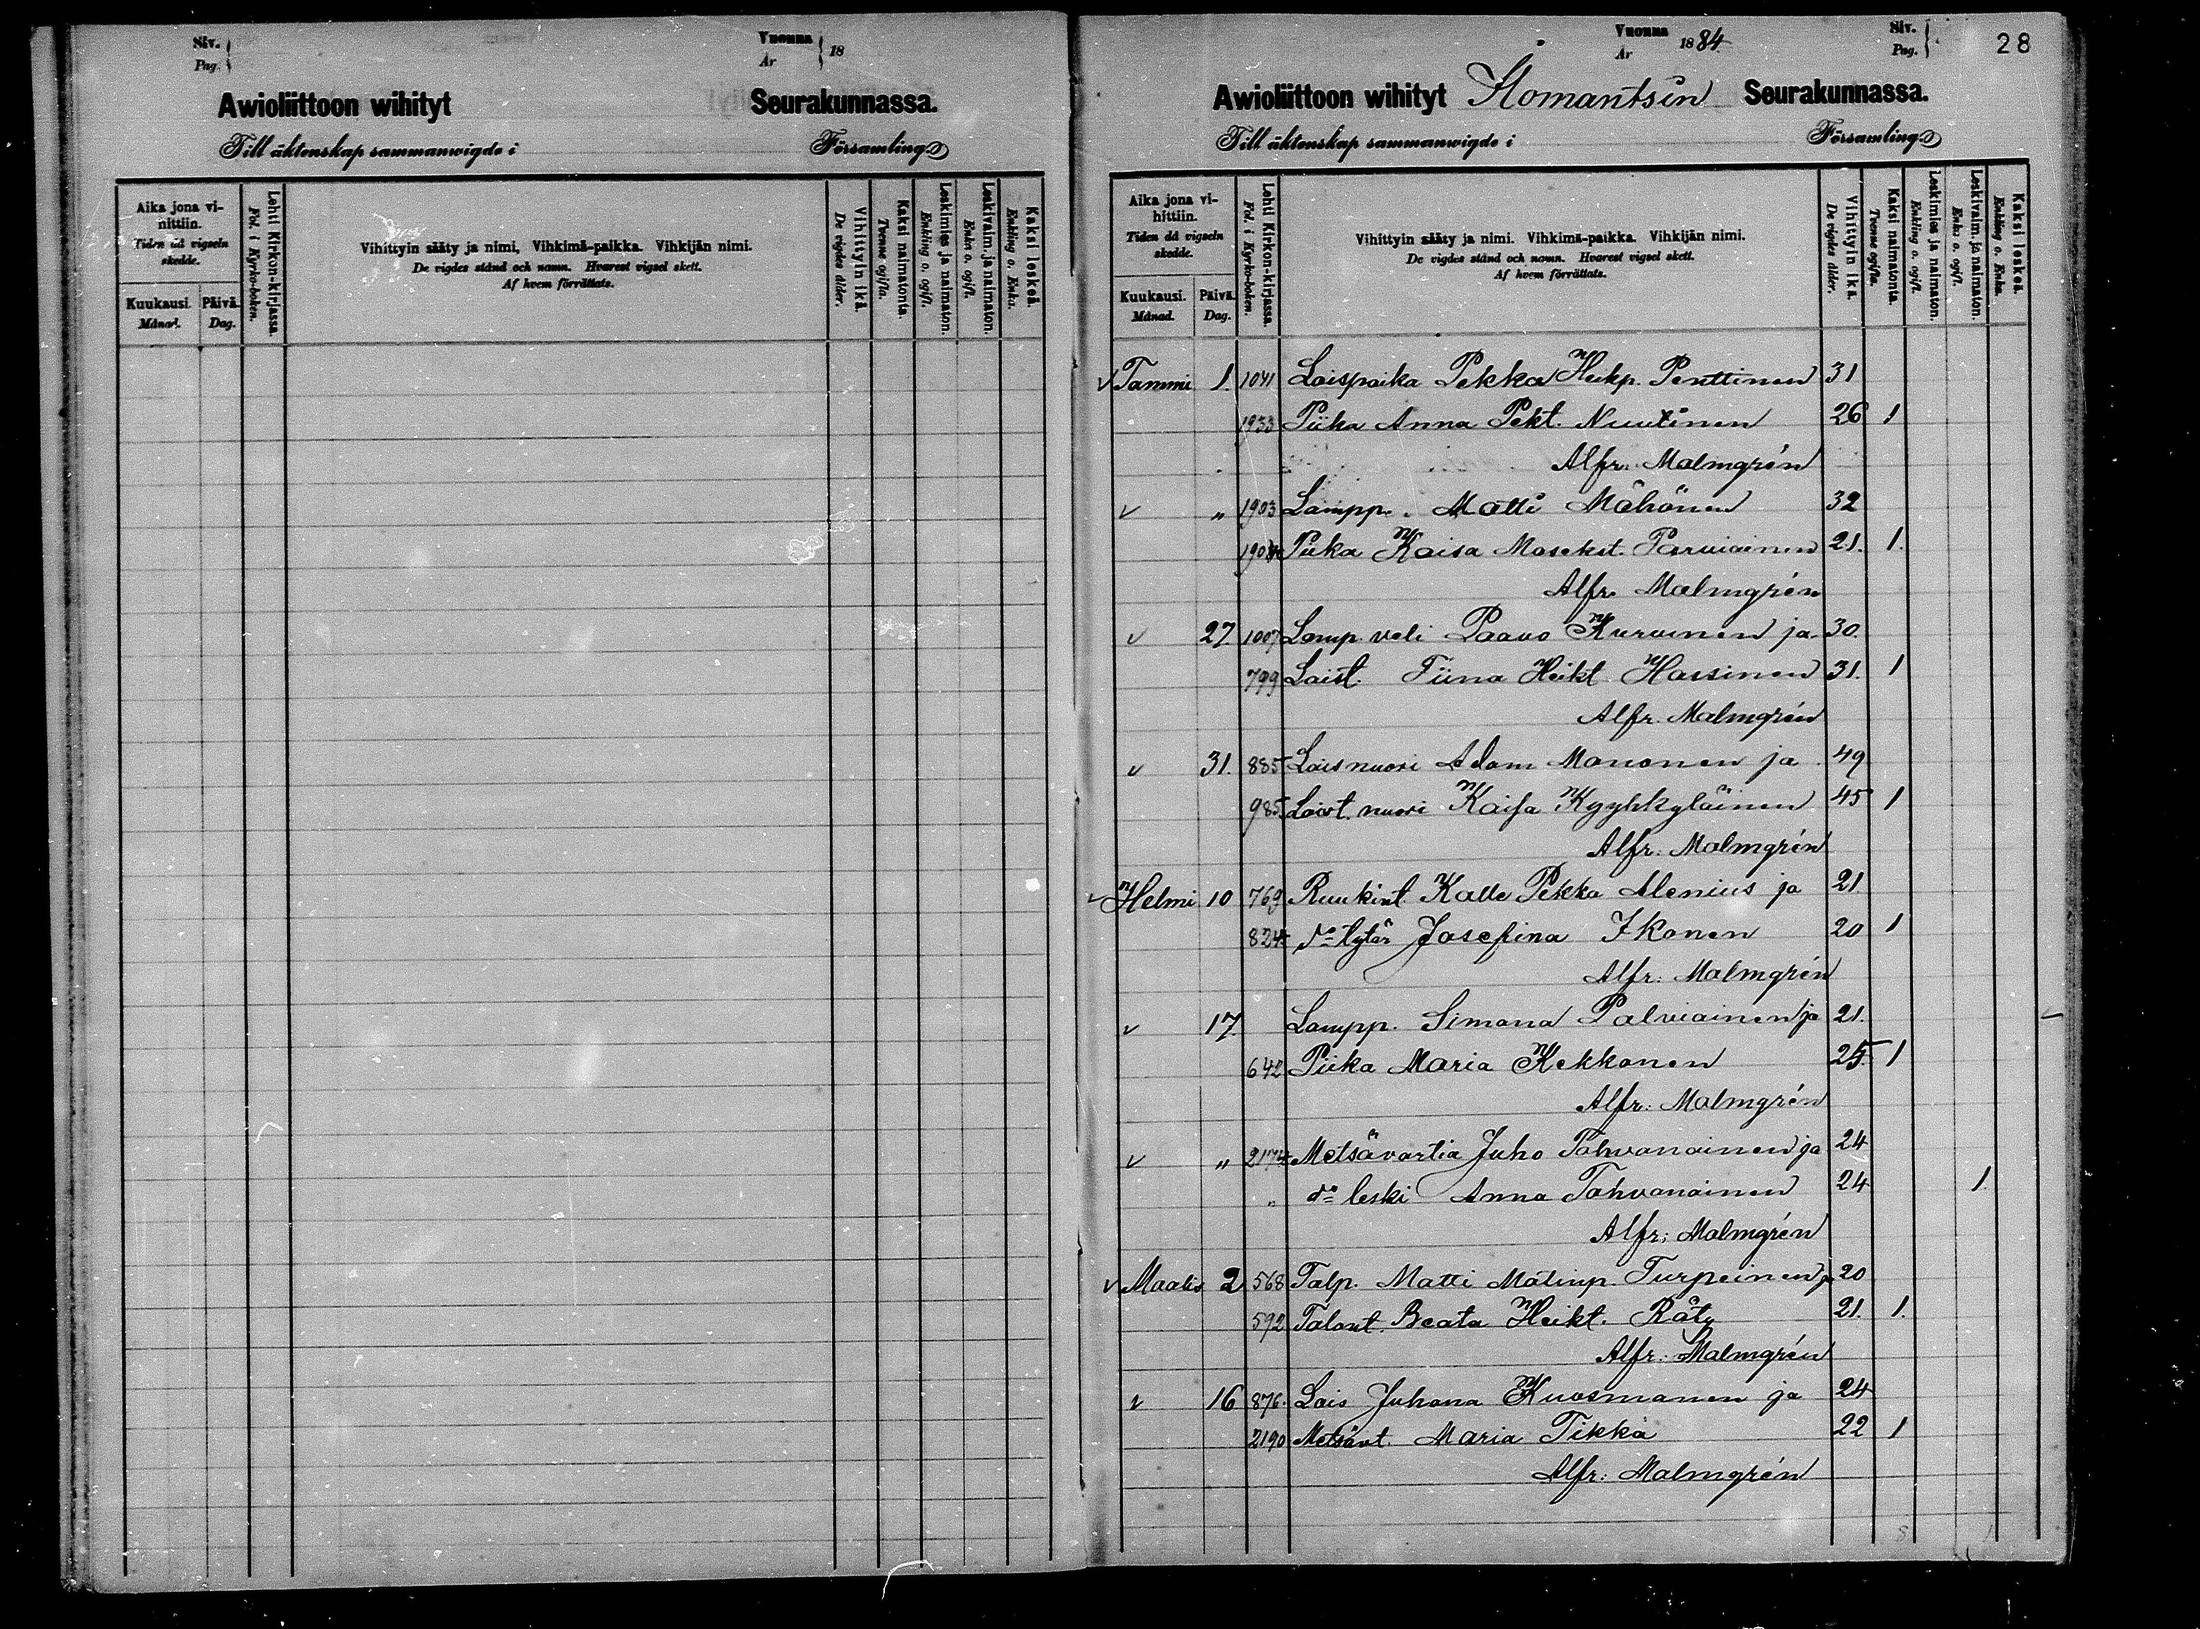 Siv.
Pag.
Vuonna
År
18
Awioliittoon wihityt Seurakunnassa.
Till äktenskap sammanwigde i Församling
Aika jona vihittiin.
Tiden då vigseln skedde.
Kuukausi.
Månad.
Päivä.
Dag.
Lehti Kirkon-kirjassa.
Fol. i Kyrko-boken.
Vihittyin sääty ja nimi, Vihkimä-paikka. Vihkijän nimi.
De vigdes stånd och namn. Hvarest vigsel skett.
Af hvem förrättats.
Vihittyin ikä.
De vigdes ålder.
Kaksi naimatonta.
Tvenne ogifta.
Leskimies ja naimaton.
Enkling o. ogift.
Leskivaim. ja naimaton.
Enka o. ogift.
Kaksi leskeä.
Enkling o. Enka.
Vuonna
År
1884
Siv.
Pag.
28
Awioliittoon wihityt Ilomantsin Seurakunnassa.
Till äktenskap sammanwigde i Församling
Aika jona vihittiin.
Tiden då vigseln skedde.
Kuukausi.
Månad.
Päivä.
Dag.
Lehti Kirkon-kirjassa.
Fol. i Kyrko-boken.
Vihittyin sääty ja nimi. Vihkimä-paikka. Vihkijän nimi.
De vigdes stånd och namn. Hvarest vigsel skett.
Af hvem förrättats.
Vihittyin ikä.
De vigdes ålder.
Kaksi naimatonta.
Tvenne ogifta.
Leskimies ja naimaton.
Enkling o. ogift.
Leskivaim. ja naimaton.
Enka o. ogift.
Kaksi leskeä.
Enkling o. Enka.
Tammi 1. 1041 Loispoika Pekka Heikp. Penttinen 31
1933 Piika Anna Pekt. Nuutinen 26 1
Alfr. Malmgrén
" 1903 Lampp. Matti Mähönen 32
Piika Kaisa Parviainen 21. 1.
Alfr. Malmgrén
27 1007 Lamp. veli Paavo Kurvinen ja 30.
799 Loist. Tiina Heikt. Hassinen 31. 1
Alfr. Malmgrén
31. 885 Loisnuori Adam Monnonen ja 49
985 Loist. nuori Kaisa Kyyhkyläinen 45 1
Alfr. Malmgrén
Helmi 10 769 Ruukint. Kalle Pekka Alenius ja 21
824 do tytär Josefina Ikonen 20 1
Alfr. Malmgrén
17. Lampp. Simana Palviainen ja 21.
642 Piika Maria Kekkonen 25. 1
Alfr. Malmgrén
" 2174 Metsävartia Juho Tahvanainen ja 24
" do leski Anna Tahvanainen 24 1.
Alfr. Malmgrén
Maalis 2 568 Talp. Matti Matinp. Turpeinen ja 20
592 Talont. Beata Heikt. Räty 21. 1.
Alfr. Malmgrén
16 876. Lois Juhana Kuosmanen ja 24
2190 Metsävt. Maria Tikka 22 1
Alfr. Malmgrén